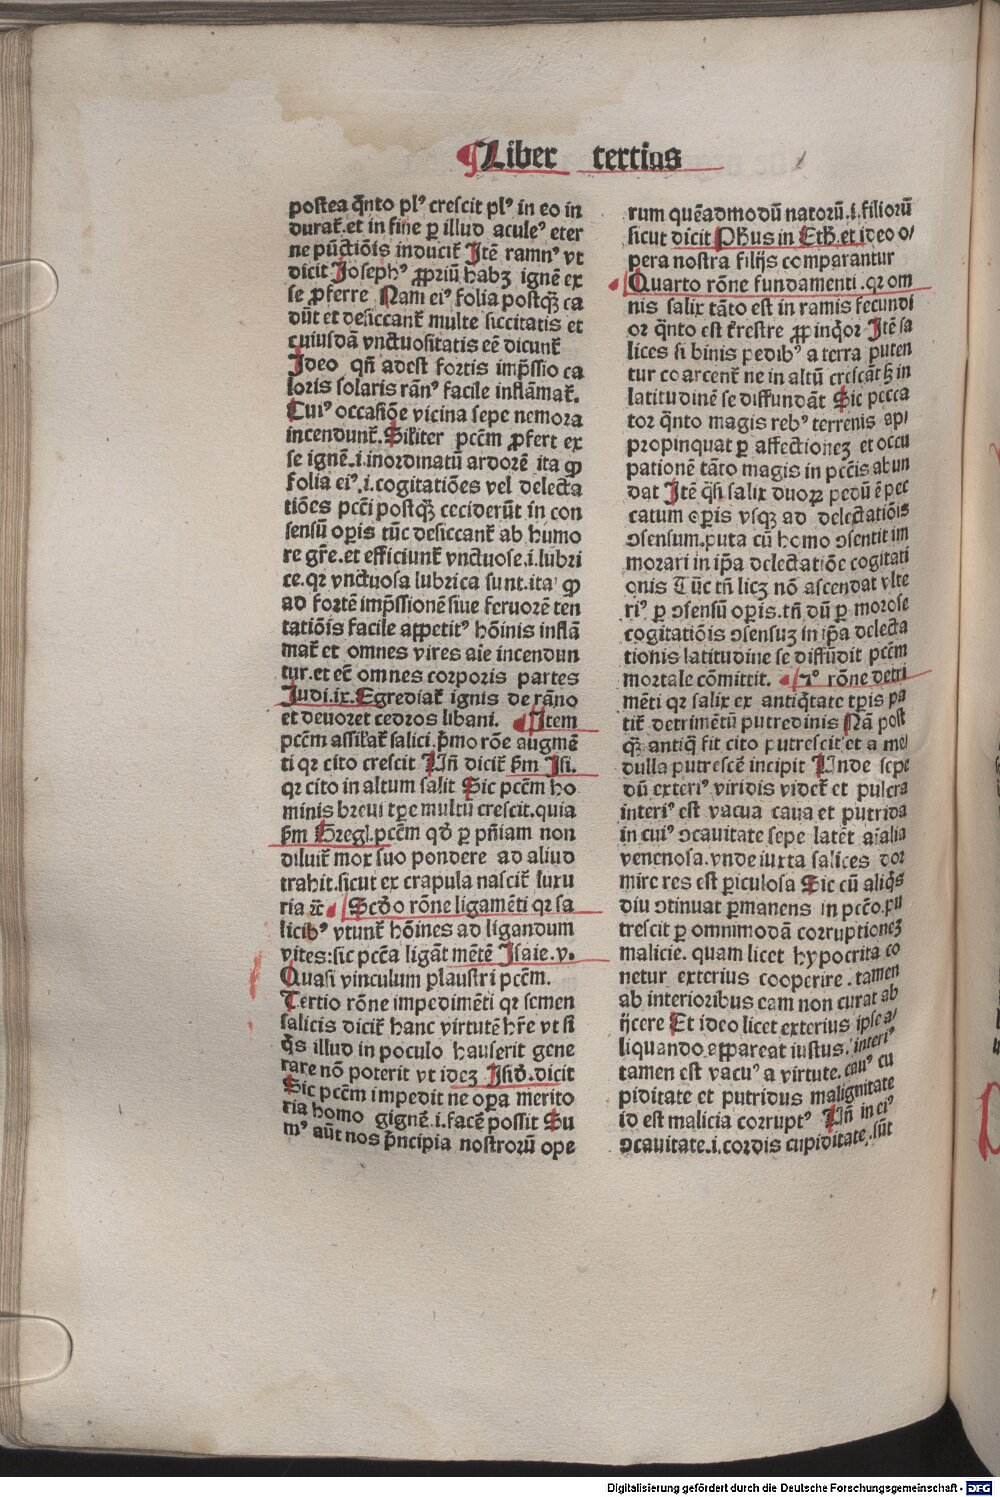 Liber tertius
postea q̄nto plꝰ crescit plꝰ in eo in
durat᷑.et in fine ꝑ illud aculeꝰ eter
ne pūctiōis inducit᷑ Itē ramnꝰ vt
dicit Josephꝰ ꝓpriū habꝫ ignē ex
se ꝓferre Nam eiꝰ folia postqꝫ̄ ca
dūt et desiccant᷑ multe siccitatis et
cuiusdā vnctuositatis eē dicunt᷑
Ideo qn̄ adest fortis imp̄ssio ca
loris solaris rānꝰ facile inflāmat᷑.
Cuiꝰ occasiōe vicina sepe nemora
incendunt᷑. Silꝉiter pctm̄ ꝓfert ex
se ignē.i.inordinatū ardorē ita ꝙ
folia eiꝰ.i.cogitatiōes vel delecta
tiōes pcci postqꝫ̄ ceciderūt in con
sensū oꝑis tūc desiccant᷑ ab humo
re gr̄e.et efficiunt᷑ vnctuose.i.lubri
ce.qꝛ vnctuosa lubrica sunt.ita ꝙ
ad fortē imp̄ssionē siue feruorē ten
tatiōis facile appetitꝰ hōinis inflā
mat᷑ et omnes vires aīe incendun
tur.et ec̄ omnes corporis partes
Judi.ix.Egrediat᷑ ignis de rāno
et deuoret cedros libani. Item
pccm̄ assilat᷑ salici.p̄mo rōe augmē
ti qꝛ cito crescit Un̄ dicit᷑ ẜm Isi.
qꝛ cito in altum salit Sic pccm̄ ho
minis breui tꝑe multū crescit.quia
ẜm Gregl.pccm̄ qd̄ ꝑ pn̄iam non
diluit᷑ mox suo pondere ad aliud
trahit.sicut ex crapula nascit᷑ luxu
ria ꝛc̄ Scd̄o rōne ligamēti qꝛ sa
licibꝰ vtunt᷑ hōines ad ligandum
vites:sic pccā ligāt mētē Isaie.v.
Quasi vinculum plaustri pccm̄.
Tertio rōne impedimēti qꝛ semen
salicis dicit᷑ hanc virtutē hr̄e vt si
qͥs illud in poculo hauserit gene
rare nō poterit vt idez Isid̄.dicit
Sic pccm̄ impedit ne oꝑa merito
ria homo gignē.i.facē possit Su
mꝰ aūt nos pͥncipia nostrorū ope
rum quēadmodū natorū.i.filiorū
sicut dicit Ph̄us in Eth̄.et ideo o/
pera nostra filijs comparantur
Quarto rōne fundamenti.qꝛ om
nis salix tāto est in ramis fecundi
or q̄nto est t᷑restre ꝓpinqͥor Itē sa
lices si binis pedibꝰ a terra puten
tur coarcent᷑ ne in altū crescāt sꝫ in
latitudinē se diffundāt Sic pecca
tor q̄nto magis rebꝰ terrenis ap/
propinquat ꝑ affectionez et occu
pationē tāto magis in pctīs abun
dat Itē qͣsi salix duoꝝ pedū ē pec
catum oꝑis vsqꝫ ad delectatiōis
ꝯsensum.puta cū homo ꝯsentit im
morari in ip̄a delectatiōe cogitati
onis Tūc tn̄ licꝫ nō ascendat vlte
riꝰ ꝑ ꝯsensū oꝑis.tn̄ dū ꝑ morose
cogitatiōis ꝯsensuz in ip̄a delecta
tionis latitudine se diffūdit pccm̄
mortale cōmittit. ꝛº rōne detri
mēti qꝛ salix ex antiqͥtate tꝑis pa
tit᷑ detrimētū putredinis Nā post
qꝫ̄ antiqͣ fit cito putrescit et a me/
dulla putrescē incipit Unde sepe
dū exteriꝰ viridis videt᷑ et pulcra
interiꝰ est vacua caua et putrida
in cuiꝰ ꝯcauitate sepe latēt aīalia
venenosa.vnde iuxta salices dor
mire res est ꝑiculosa Sic cū aliqͥs
diu ꝯtinuat ꝑmanens in pccō.pu
trescit ꝑ omnimodā corruptionez
malicie. quam licet hypocrita co
netur exterius cooperire.tamen
ab interioribus eam non curat ab
ijcere Et ideo licet exterius ipse a/
liquando appareat iustus.interiꝰ
tamen est vacuꝰ a virtute.cauꝰ cu
piditate et putridus malignitate
id est malicia corruptꝰ Un̄ in ciꝰ
ꝯcauitate.i.cordis cupiditate.sūt
Digitalisierung gefördert durch die Deutsche Forschungsgemeinschaft - DFG